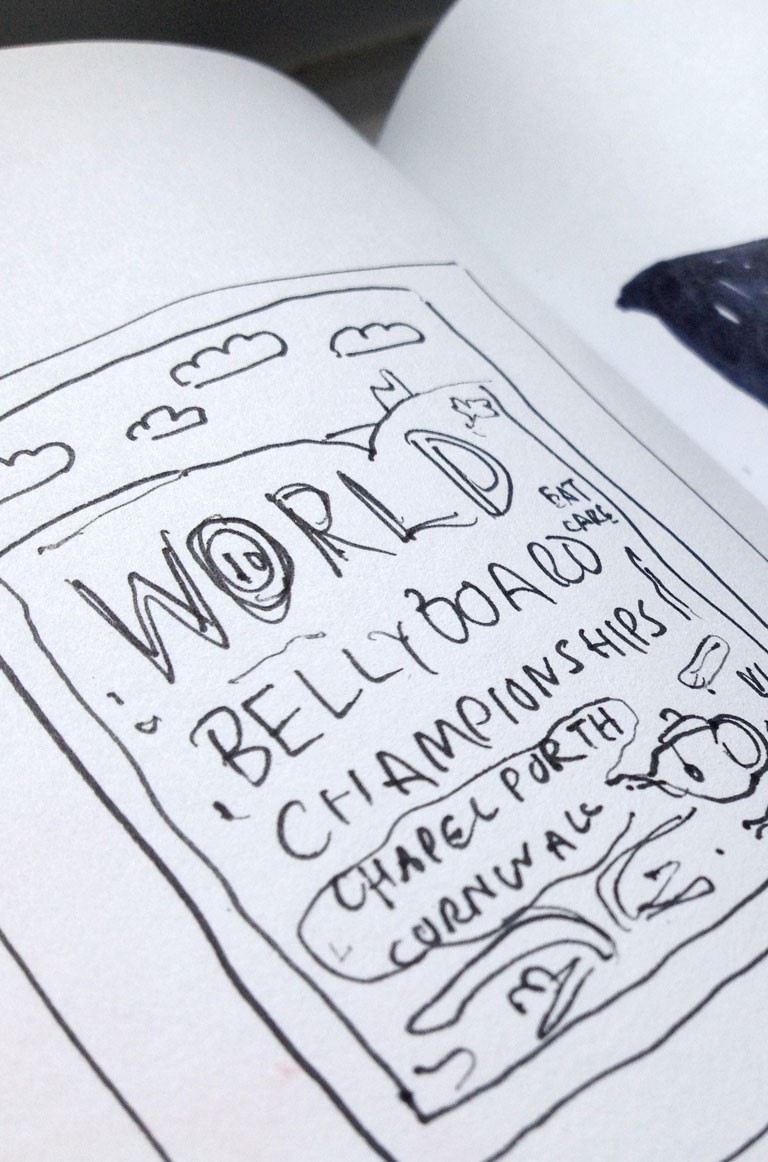 WORLD
EAT
CAKE
BELLYBOARD
CHAMPIONSHIPS
CHAPEL PORTH
CORNWALL